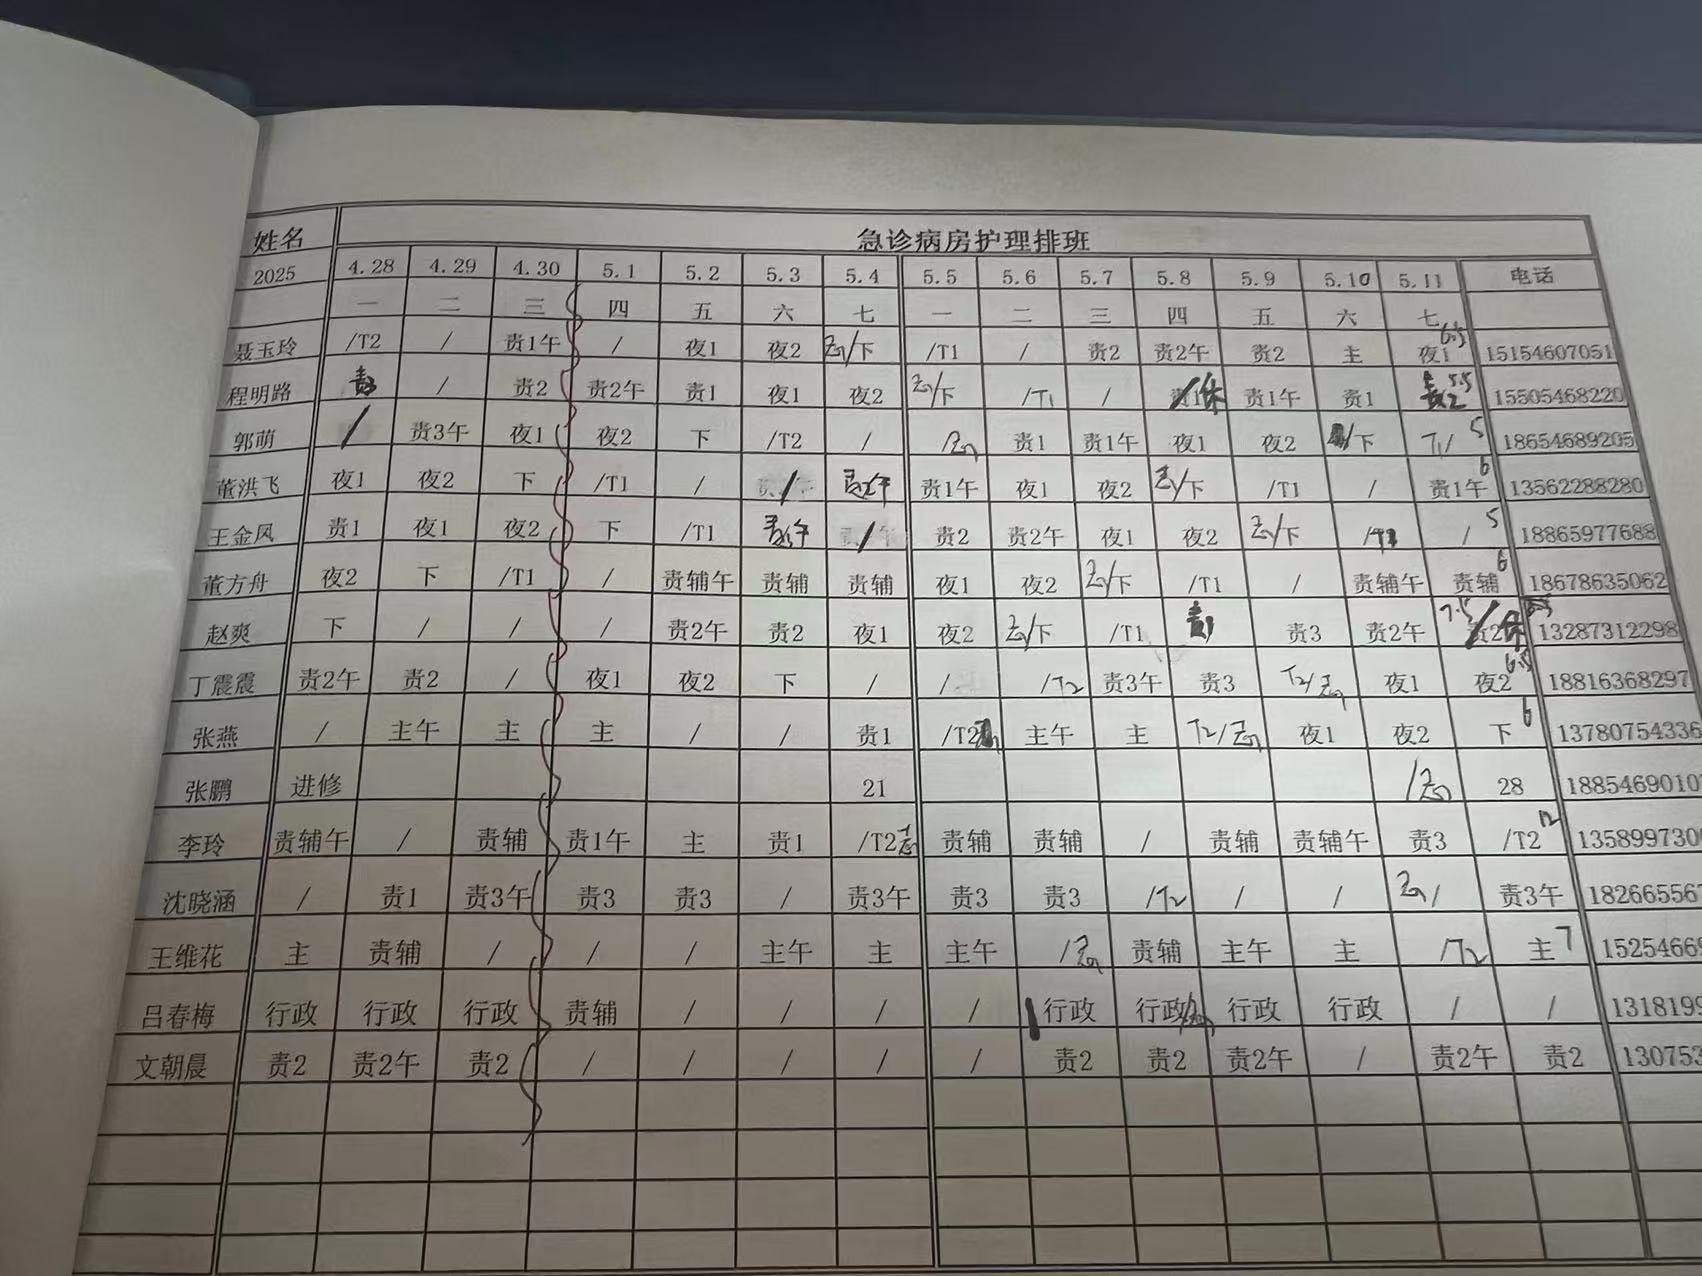 姓名 急诊病房护理排班
2025 4.28 4.29 4.30 5.1 5.2 5.3 5.4 5.5 5.6 5.7 5.8 5.9 5.10 5.11 电话
一 二 三 四 五 六 七 一 二 三 四 五 六 七
聂玉玲 /T2 / 责1午 / 夜1 夜2 /下 /T1 / 责2 责2午 责2 主 夜1 6.5 15154607051
程明路 / 责2 责2午 责1 夜1 夜2 /下 /T1 / 休 责1午 责1 责2 5.5 15505468220
郭萌 / 责3午 夜1 夜2 下 /T2 / / 责1 责1午 夜1 夜2 /下 T1/ 5 18654689205
董洪飞 夜1 夜2 下 /T1 / / 责2午 责1午 夜1 夜2 /下 /T1 / 责1午 6 13562288280
王金风 责1 夜1 夜2 下 /T1 / 责2 责2午 夜1 夜2 /下 / 5 18865977688
董方舟 夜2 下 /T1 / 责辅午 责辅 责辅 夜1 夜2 /下 /T1 / 责辅午 责辅 6 18678635062
赵爽 下 / / / 责2午 责2 夜1 夜2 /下 /T1 责3 责2午 7.5 休 13287312298
丁震震 责2午 责2 / 夜1 夜2 下 / / /T2 责3午 责3 T2/ 夜1 夜2 6.5 18816368297
张燕 / 主午 主 主 / / 责1 /T2 主午 主 T2/ 夜1 夜2 下 6 13780754336
张鹏 进修 21 / 28 1885469010
李玲 责辅午 / 责辅 责1午 主 责1 /T2 责辅 责辅 / 责辅 责辅午 责3 /T2 12 135899730
沈晓涵 / 责1 责3午 责3 责3 / 责3午 责3 责3 /T2 / / / 责3午 18266556
王维花 主 责辅 / / / 主午 主 主午 / 责辅 主午 主 /T2 主 7 1525466
吕春梅 行政 行政 行政 责辅 / / / / 行政 行政 行政 行政 / / 131819
文朝晨 责2 责2午 责2 / / / / / 责2 责2 责2午 / 责2午 责2 13075